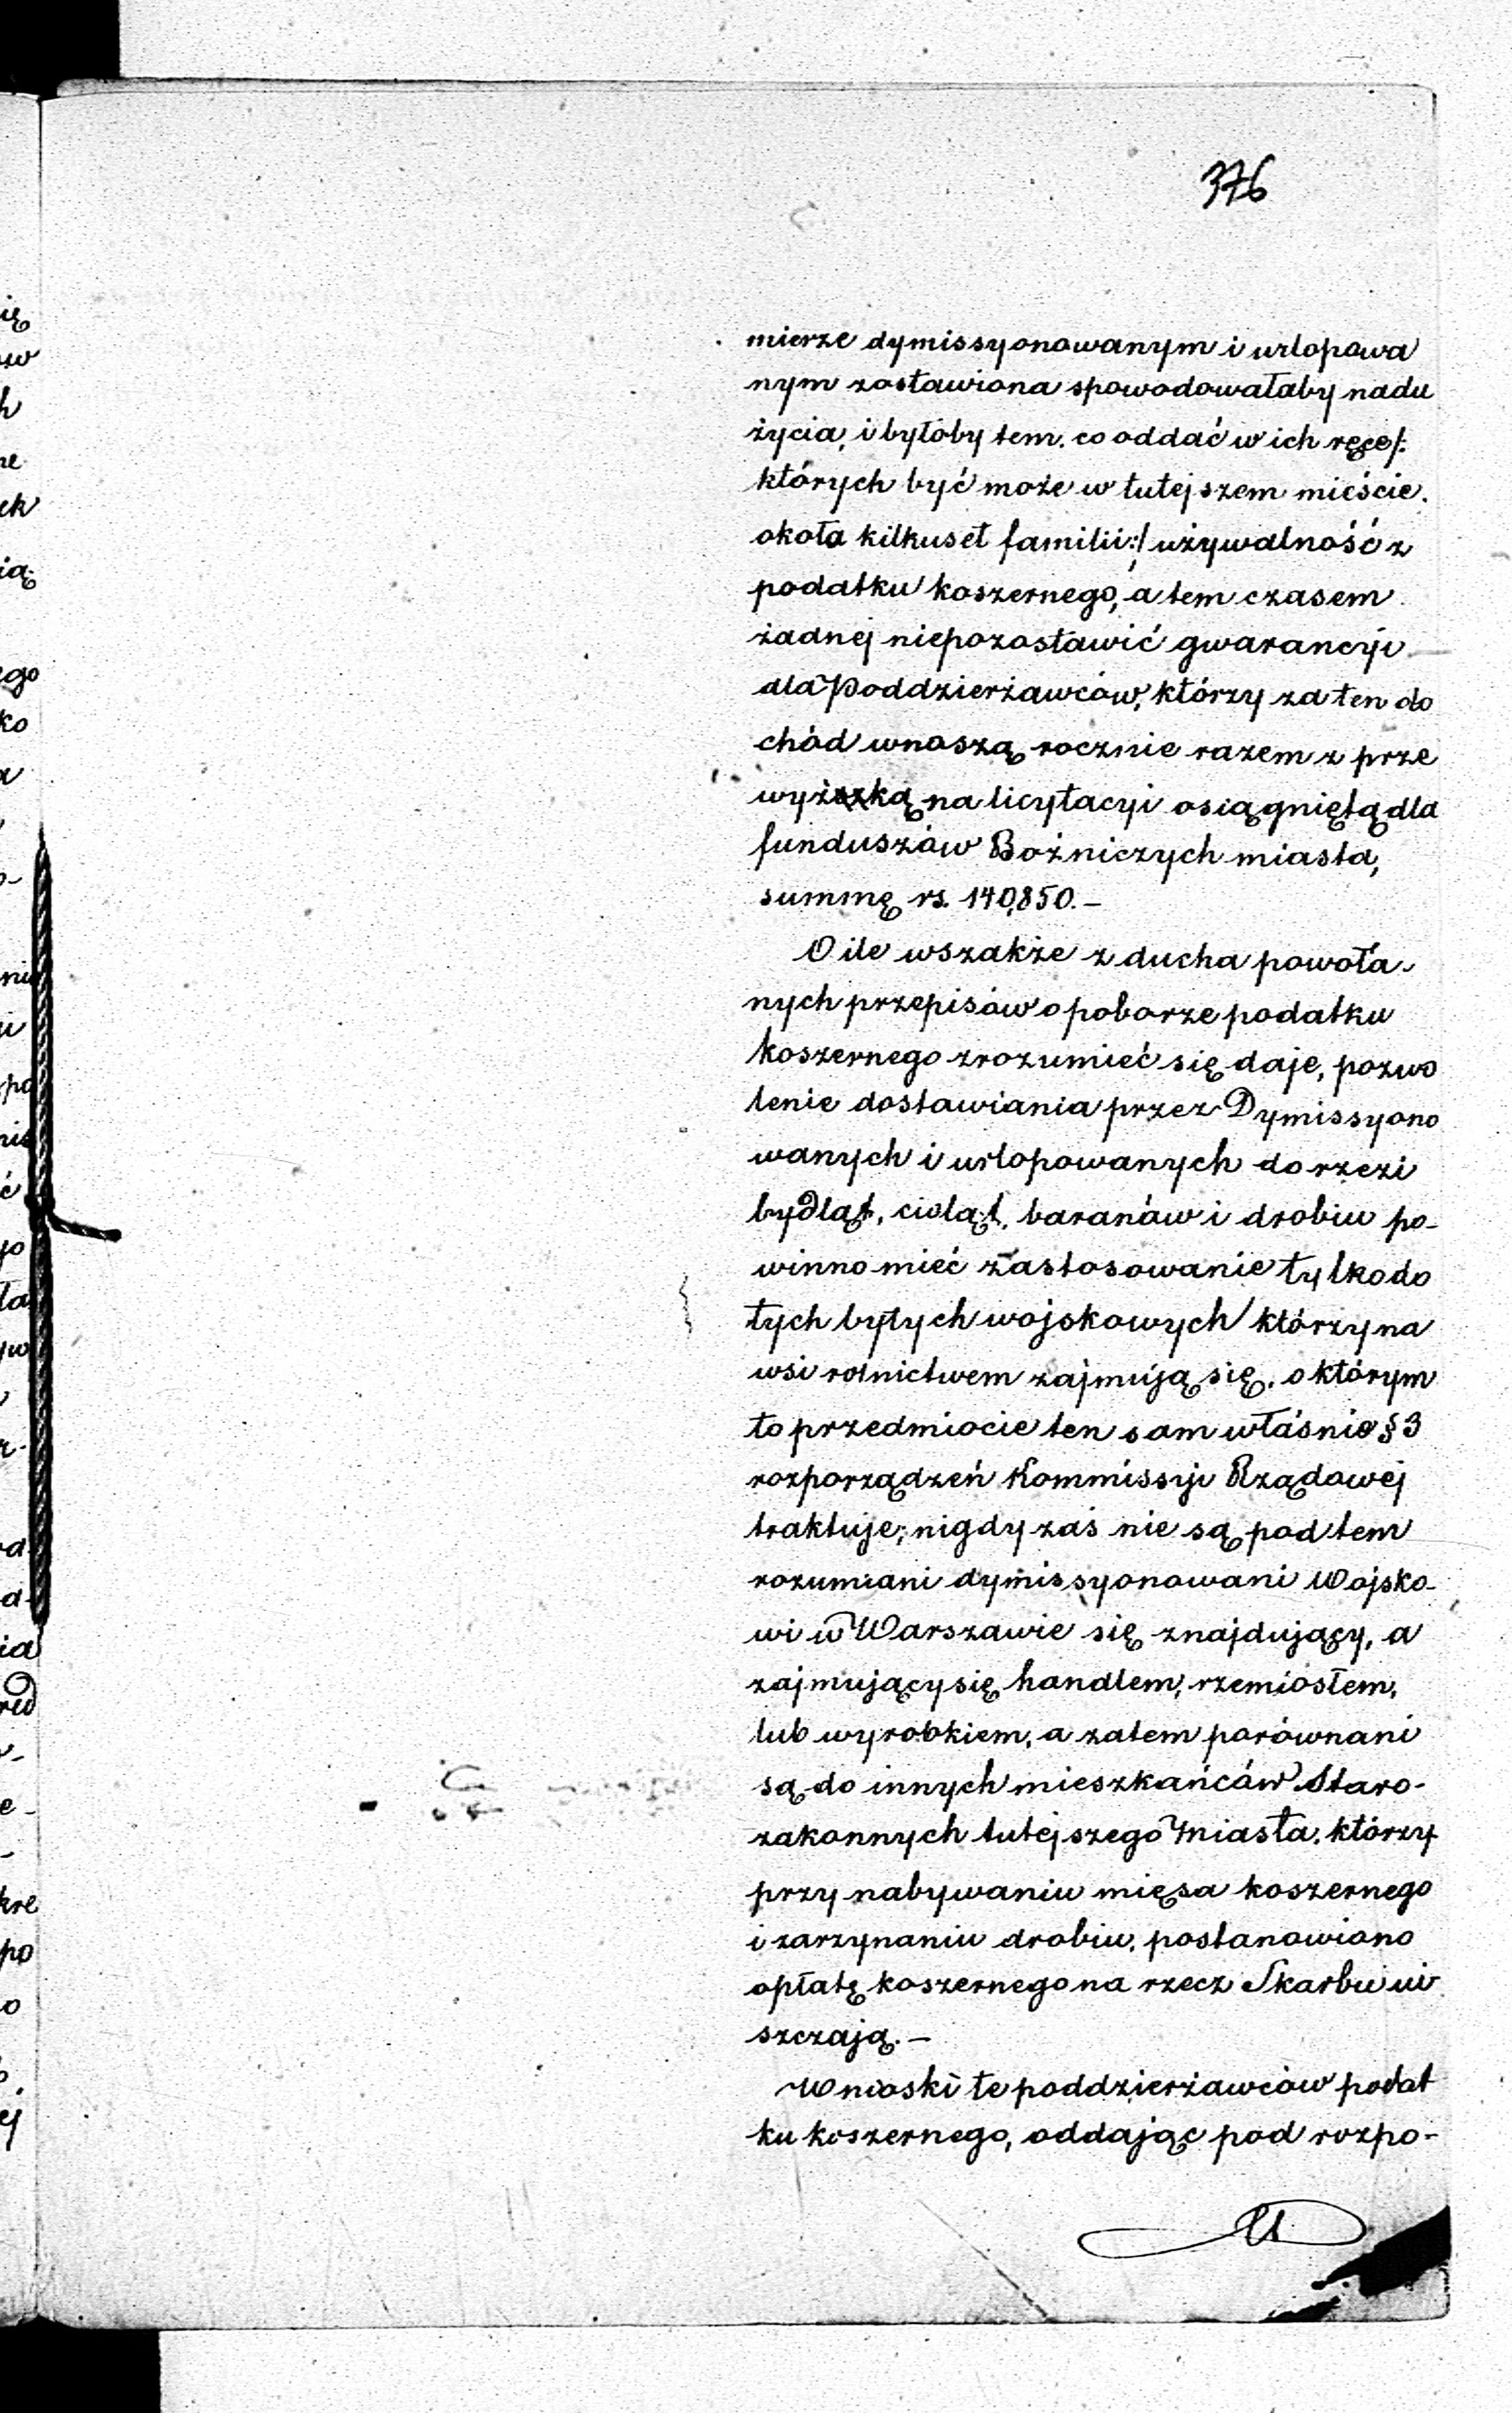 376
mierze dymissyonowanym i urlopowa
nym zostawiona spowodowałaby nadu
życia, i byłoby tem, co oddać w ich ręce /:
których być może w tutejszem mieście.
około kilkuset familii :/ używalność z
podatku koszernego, a tem czasem
żadnej niepozostawić gwarancyi
dla Poddzierżawców, którzy za ten do
chód wnoszą rocznie razem z prze
wyżką na licytacyi osiągniętą dla
funduszów Bożniczych miasta,
summę rs. 140,850.–
O ile wszakże z ducha powoła-
nych przepisów o poborze podatku
koszernego zrozumieć się daje, pozwo
lenie dostawiania przez Dymissyono
wanych i urlopowanych do rzezi
bydląt, cieląt, baranów i drobiu po-
winno mieć zastosowanie tylko do
tych byłych wojskowych którzy na
wsi rolnictwem zajmują się, o którym
to przedmiocie ten sam właśnie § 3
rozporządzeń Kommissyi Rządowej
traktuje; nigdy zaś nie są pod tem
rozumiani dymissyonowani Wojsko-
wi w Warszawie się znajdujący, a
zajmujący się handlem, rzemiosłem,
lub wyrobkiem, a zatem porównani
są do innych mieszkańców Staro-
zakonnych tutejszego miasta, którzy
przy nabywaniu mięsa koszernego
i zarzynaniu drobiu, postanowiono
opłatę koszernego na rzecz Skarbu ui
szczają.–
Wnioski te poddzierżawców podat
ku koszernego, oddając pod rozpo-